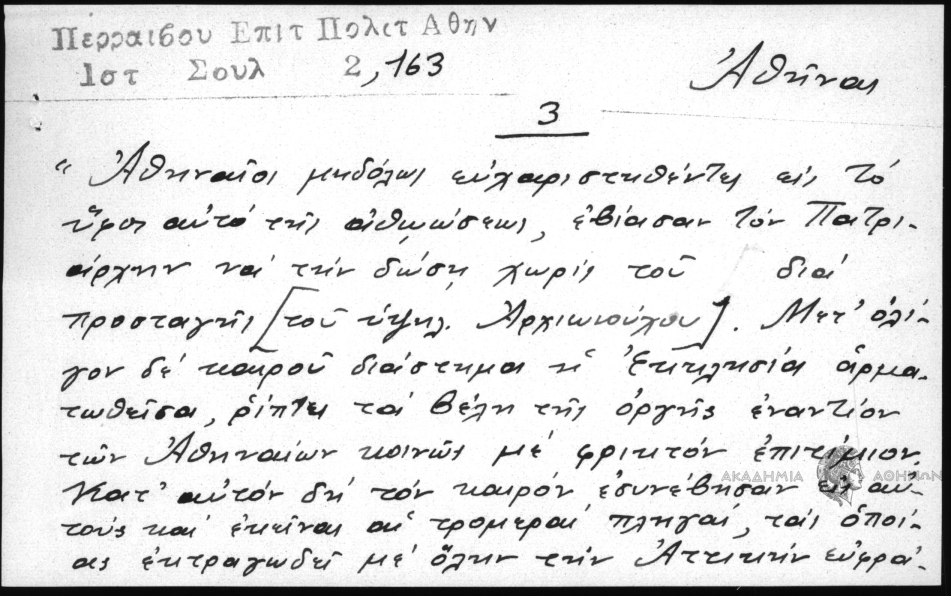 Περραιβου Επιτ Πολιτ Αθην
Ιστ Σουλ 2,163
Ἀθῆναι
3
“ Ἀθηναῖοι μηδόλως εὐχαριστηθέντες εἰς τὸ
ὕφος αὐτὸ τῆς ἀθωώσεως, ἐβίασαν τὸν Πατρι-
άρχην νά τήν δώσῃ χωρίς τοῦ διά
προσταγῆς [τοῦ ὑψηλ. Ἀρχι]. Μετ' ὀλί-
γον δέ καιροῦ διάστημα ἡ Ἐκκλησία ἁρμα-
τωθεῖσα, ῥίπτει τά βέλη τῆς ὀργῆς ἐναντίον
τῶν Ἀθηναίων κοινῶς μέ φρικτόν ἐπιτίμιον.
Κατ' αὐτόν δή τόν καιρόν ἐσυνέβησαν εἰς αὐ-
τούς καί ἐκεῖναι αἱ τρομεραί πληγαί, τάς ὁποί-
ας ἐκτραγωδεῖ μέ ὅλην τήν Ἀττικήν εὐφρά-
ΑΚΑΔΗΜΙΑ ΑΘΗΝΩΝ